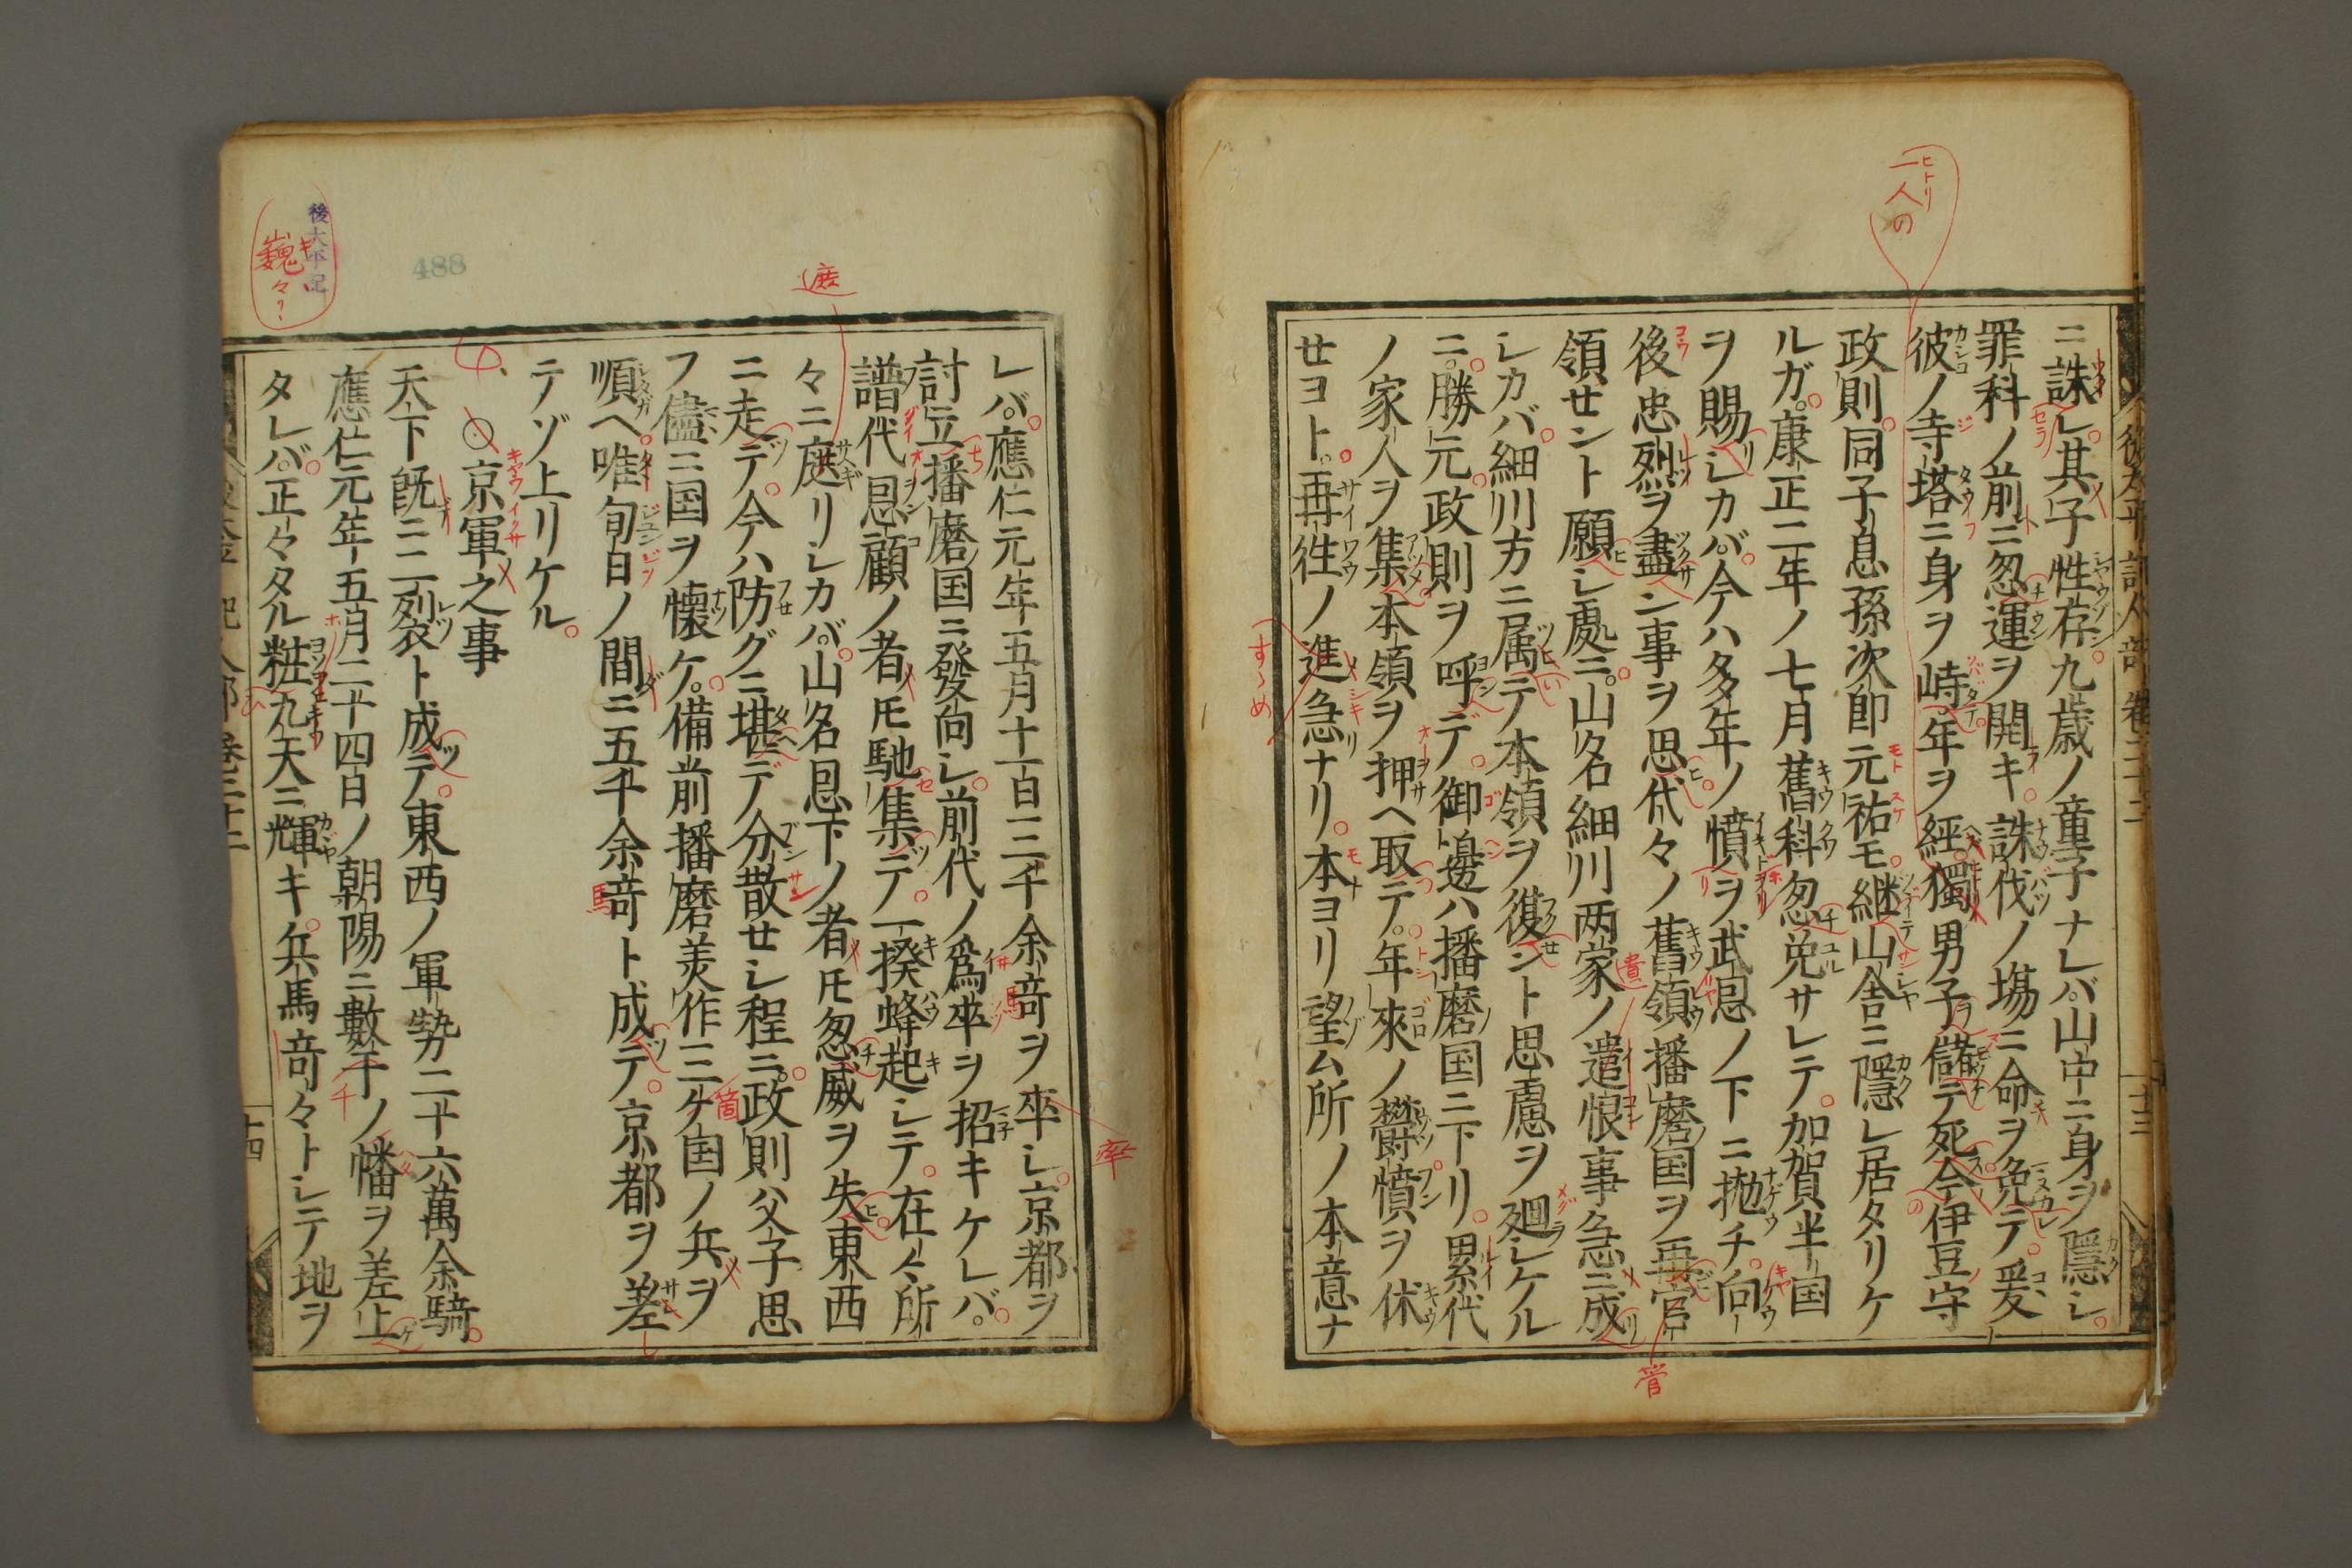 ニ誅シ其子性存九歳ノ童子ナレバ山中ニ身ヲ隠シ
罪科ノ前ニ忽運ヲ開キ誅伐ノ場ニ命ヲ免テ爰
彼ノ寺塔ニ身ヲ峙年ヲ経獨男子儲テ死今伊豆守
政則同子息孫次郎元祐モ継山舎ニ隠レ居タリケ
ルガ康正二年ノ七月舊科忽免サレテ加賀半国
ヲ賜シカバ今ハ多年ノ憤ヲ武恩ノ下ニ抛チ向
後忠烈ヲ盡ン事ヲ思代々ノ舊領播磨国ヲ再官
領せント願シ處ニ山名細川両家ノ遣恨事急ニ成
シカバ細川方ニ属テ本領ヲ復ント思慮ヲ廻シケル
ニ勝元政則ヲ呼デ御邊ハ播磨国ニ下リ累代
ノ家人ヲ集本領ヲ押ヘ取テ年來ノ欝憤ヲ休
せヨト再徃ノ進急ナリ本ヨリ望ム所ノ本意ナ
後太平記人部 巻三十二
十三
一人の
ヒトリ
すゝめ
遺
管
レバ應仁元年五月十日三千余竒ヲ卒シ京都ヲ
討立播磨国ニ發向シ前代ノ爲卒ヲ招キケレバ
譜代恩顧ノ者ノ𪜈馳集テ一揆蜂起シテ在々所
々ニ庭リシカバ山名恩下ノ者𪜈忽威ヲ失東西
ニ走テ今ハ防グニ堪デ分散せシ程ニ政則父子思
フ儘ニ国ヲ懐ケ備前播磨美作三ケ国ノ兵ヲ
順ヘ唯旬日ノ間ニ五千余竒ト成テ京都ヲ差
テゾ上リケル
○京軍之事
天下既ニ二裂ト成テ東西ノ軍勢二十六萬余騎
應仁元年五月二十四日ノ朝陽ニ數千ノ幡ヲ差上
タレバ正々タル粧九天ニ輝キ兵馬竒々トシテ地ヲ
十四
遮
率
馬
箇
千
488
後太平記
巍々?